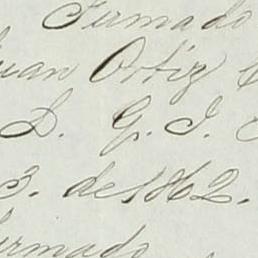 Firmado
Juan Ortiz
D. G. J.
3. de 1862.
Firmado